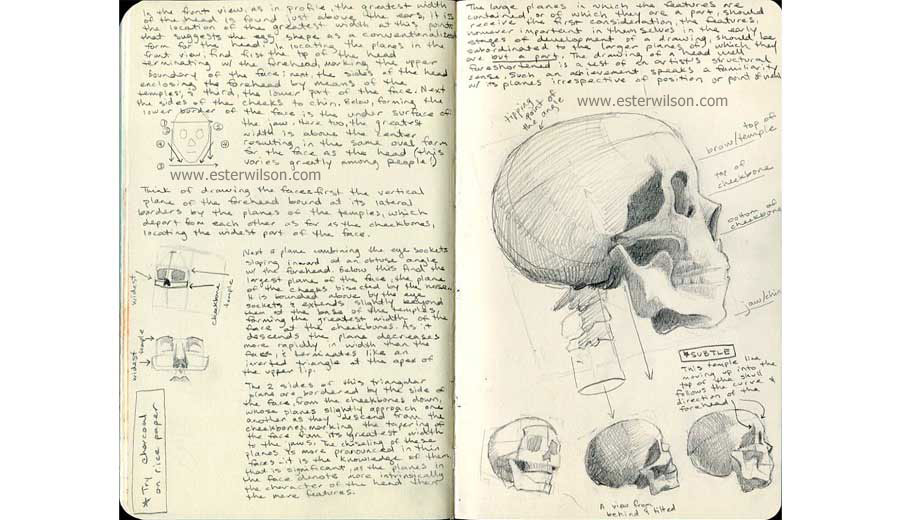 In the front view, as in profile, the greatest width
of the head is found just above the ears, it is
the location of the greatest width at this point
that suggests the "egg" shape as a conventionalized
form for the head. In locating the planes in the
front view, find first the top of the head
terminating w/ the forehead, marking the upper
boundary of the face; next, the sides of the head
enclosing the forehead by means of the
temples, & third, the lower part of the face. Next
the sides of the cheeks to chin. Below, forming the
lower border of the face is the under surface of
the jaw. Here too, the greatest
width is above the center
resulting in the same oval form
for the face as the head (this
varies greatly among people!)
www.esterwilson.com
Think of drawing the faces-first the vertical
plane of the forehead bound at its lateral
borders by the planes of the temples, which
depart from each other as far as the cheekbones,
locating the widest part of the face.
widest
cheekbone
temple
Next a plane combining the eye sockets
sloping inward at an obtuse angle
w/ the forehead. Below this find the
largest plane of the face, the plane
of the cheeks bisected by the nose.
It is bounded above by the eye
sockets & extends slightly beyond
them at the base of the temples,
forming the greatest width of the
face at the cheekbones. As it
descends the plane decreases
more rapidly in width than the
face, & terminates like an
inverted triangle at the apex of
the upper lip.
widest
temple
The 2 sides of this triangular
plane are bordered by the side of
the face, from the cheekbones down,
whose planes slightly approach one
another as they descend from the
cheekbones, marking the tapering of
the face from its greatest width
to the jaws. The chiseling of these
planes is more pronounced in thin
faces; it is the knowledge of them
that is significant, as the planes in
the face denote more intrinsically
the character of the head than
the mere features.
* Try charcoal
on rice paper
The large planes in which the features are
contained, or of which they are a part, should
receive the first consideration, the features,
however important in themselves in the early
stages of development of a drawing, should be
subordinated to the larger planes of which they
are but a part. The drawing of a head well
foreshortened is a test of an artist's structural
sense. Such an achievement speaks a familiarity
w/ its planes irrespective of position or point of view.
www.esterwilson.com
tipping
point of
the angle
top of
brow/temple
top of
cheekbone
bottom of
cheekbone
jaw/chin
*SUBTLE
This temple line
moving up into the
top of the skull
follows the curve &
direction of the
forehead
A view from
behind & tilted